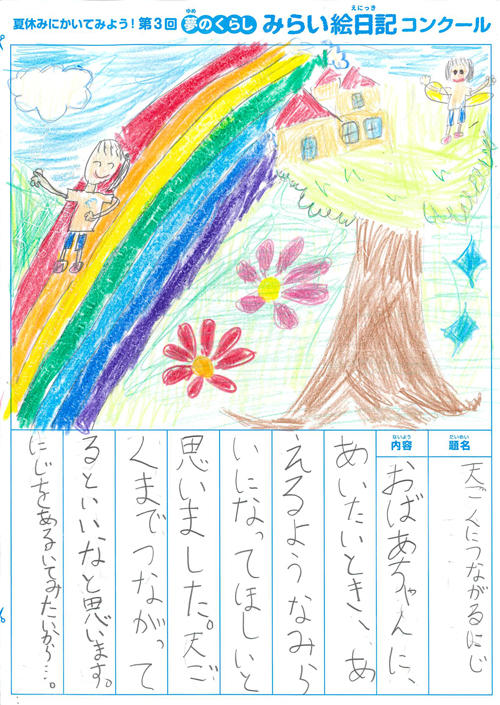 夏休みにかいてみよう！第3回 夢のくらし みらい絵日記 コンクール
ゆめ
えにっき
だいめい
題名
天ごくにつながるにじ
ないよう
内容
おばあちゃんに、
あいたいとき、あ
えるようなみら
いになってほしいと
思いました。天ご
くまでつながって
るといいなと思います。
にじをあるいてみたいから…。